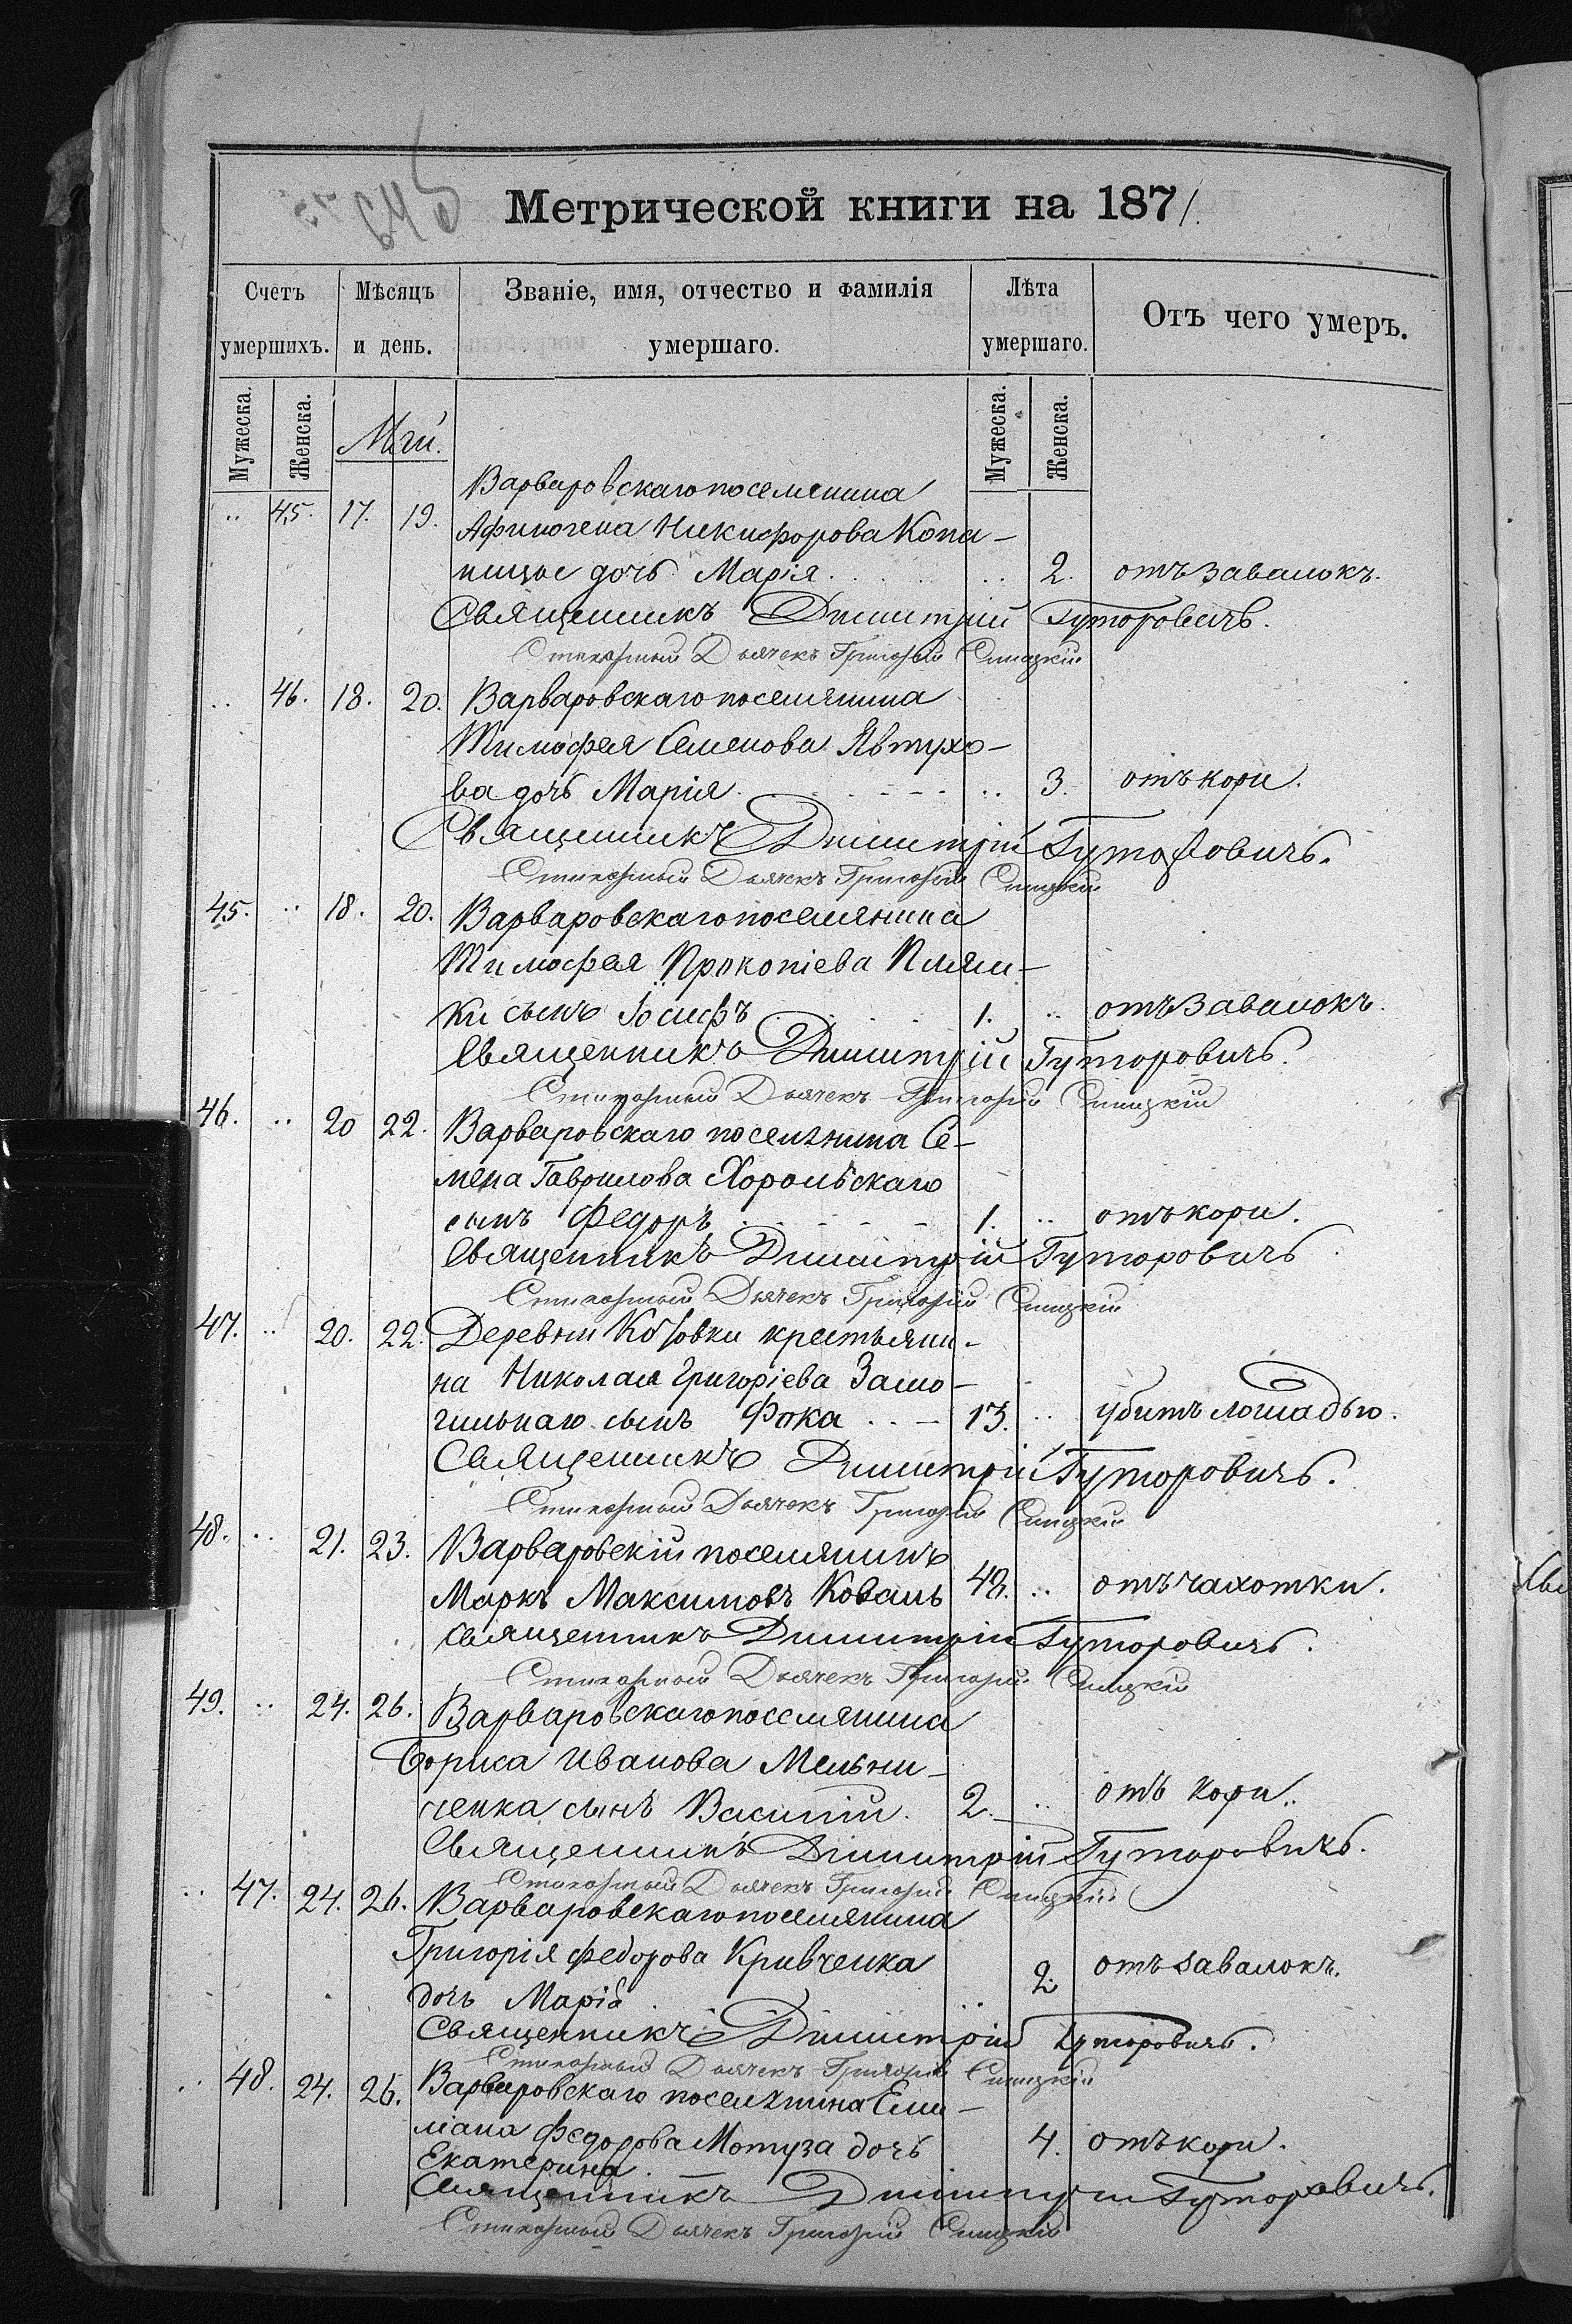 645
Метрической книги на 1871.
Счетъ умершихъ.
Мѣсяцъ и день.
Званіе, имя, отчество и фамилія умершаго.
Лѣта умершаго.
Отъ чего умеръ.
Мужеска. Женска. Май. Мужеска. Женска.
Варваровскаго поселянина
.. 45. 17. 19. Афиногена Никифорова Копа-
дочь Марія. .. 2. отъ завалокъ.
Священникъ Димитрій Гуторовичъ.
Стихарный Дьячекъ Григорій
.. 46. 18. 20. Варваровскаго поселянина
Тимофея Семенова Явтухо-
ва дочь Марія. .. 3. отъ кори.
Священникъ Димитрій Гуторовичъ.
Стихарный Дьячекъ Григорій
45. .. 18. 20. Варваровскаго поселянина
Тимофея Прокопіева
ки сынъ Іосифъ 1. .. отъ завалокъ.
Священникъ Димитрій Гуторовичъ.
Стихарный Дьячекъ Григорій
46. .. 20 22. Варваровскаго поселянина Се-
мена Гаврилова Хорольскаго
сынъ Федоръ 1. .. отъ кори.
Священникъ Димитрій Гуторовичъ
Стихарный Дьячекъ Григорій
47. .. 20. 22. Деревни крестьяни-
на Николая Григоріева Замо-
гильнаго сынъ Фока .. 13. .. убитъ лошадью.
Священникъ Димитрій Гуторовичъ.
Стихарный Дьячекъ Григорій
48. .. 21. 23. Варваровскій поселянинъ
Маркъ Максимовъ Коваль 48. .. отъ чахотки.
Священникъ Димитрій Гуторовичъ.
Стихарный Дьячекъ Григорій
49. .. 24. 26. Варваровскаго поселянина
Бориса Иванова Мельни-
ченка сынъ Василій. 2. .. отъ кори.
Священникъ Димитрій Гуторовичъ.
Стихарный Дьячекъ Григорій
.. 47. 24. 26. Варваровскаго поселянина
Григорія Федорова Кривченка
дочь Марія .. 2. отъ завалокъ.
Священникъ Димитрій Гуторовичъ.
Стихарный Дьячекъ Григорій
.. 48. 24. 26. Варваровскаго поселянина Еми-
ліана Федорова Мотуза дочь 4. отъ кори.
Екатерина.
Священникъ Димитрій Гуторовичъ.
Стихарный Дьячекъ Григорій